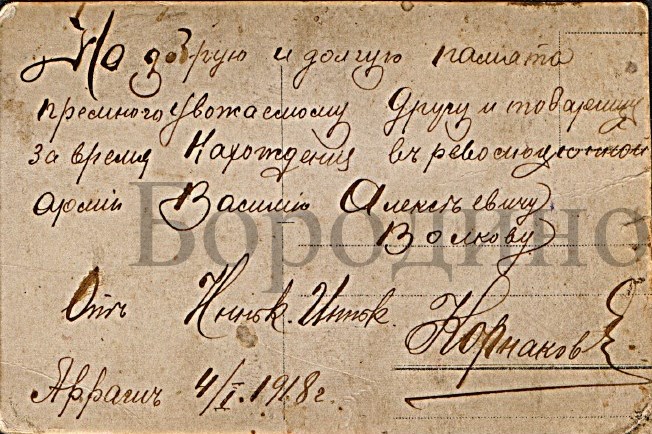 На добрую и долгую память
премного уважаемому другу и товарищу
за время нахождения въ революционной
армии Василию Алексѣевичу
Волкову
Отъ Корнаков
4/I. 1918 г.
Бородино